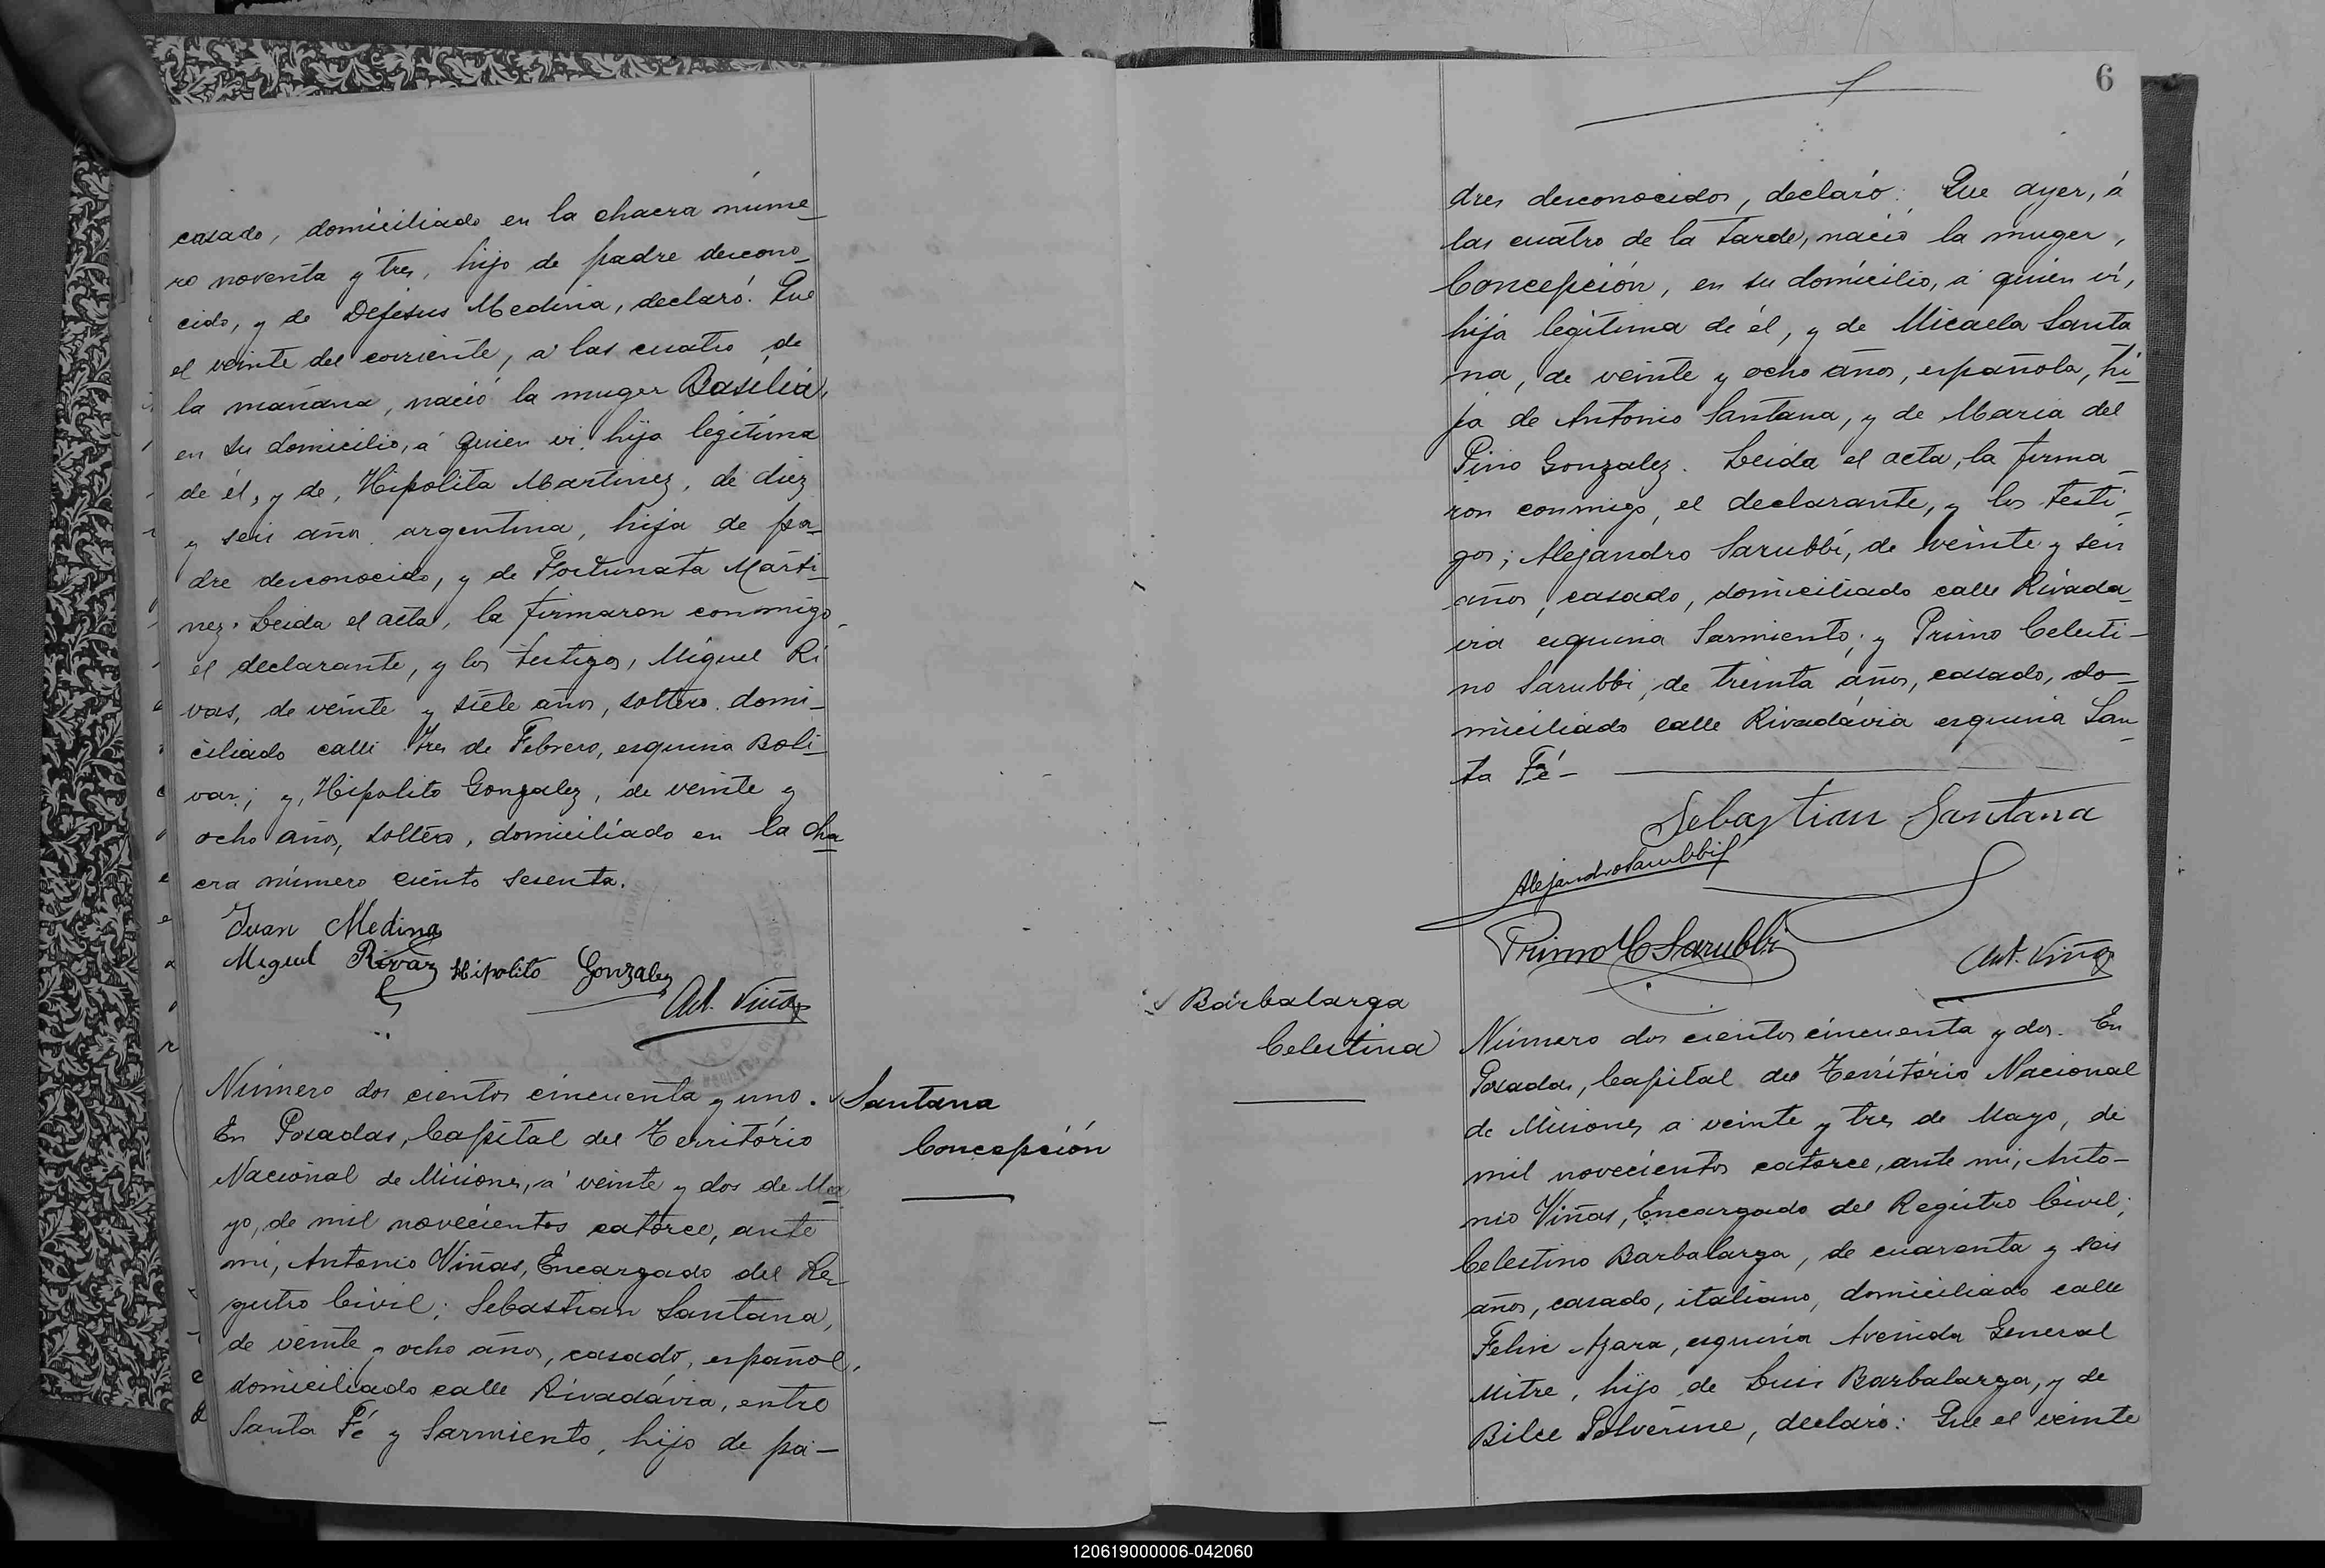 casado, domiciliado en la chacra núme_
ro noventa y tres, hijo de padre descono_
cido, y de Dejesus Medina, declaró: Que
el veinte del corriente, a las cuatro de
la mañana, nació la muger Basilia,
en su domicilio, á quien vi, hija legítima
de él, y de, Hipolita Martinez, de diez
y seis años argentina, hija de pa_
dre desconocido, y de Fortunata Marti_
nez. Leida el acta, la firmaron conmigo
el declarante, y los testigos, Miguel Ri
vas, de veinte y siete años, soltero. domi_
ciliado calle Tres de Febrero, esquina Boli_
var; y, Hipolito Gonzalez, de veinte y
ocho años, soltero, domiciliado en la cha
cra número ciento sesenta.
Juan Medina
Miguel Rivaz Hipolito Gonzalez
Ant. Viñas
Número dos cientos cincuenta y uno.
En Posadas, Capital del Território
Nacional de Misiones, á veinte y dos de Ma
yo, de mil novecientos catorce, ante
mi, Antonio Viñas, Encargado del Re_
gistro Civil; Sebastian Santana,
de veinte y ocho años, casado, español,
domiciliado calle Rivadávia, entre
Santa Fé y Sarmiento, hijo de pa-
Santana
Concepción
6
dres desconocidos, declaró: Que ayer, á
las cuatro de la tarde, nació la muger,
Concepción, en su domicilio, á quien vi,
hija legítima de él, y de Micaela Santa
na, de veinte y ocho años, española, hi_
ja de Antonio Santana, y de Maria del
Pino Gonzalez. Leida el acta, la firma_
ron conmigo, el declarante, y los testi_
gos; Alejandro Sarubbi, de veinte y seis
años, casado, domiciliado calle Rivada_
via esquina Sarmiento; y Primo Celesti-
no Sarubbi, de treinta años, casado, do-
miciliado calle Rivadávia esquina San_
ta Fé-
Sebastian Santana
Alejandro Sarubbi
Primo C Sarubbi
Ant. Viñas
Barbalarga
Celestina
Número dos cientos cincuenta y dos. En
Posadas, Capital del Território Nacional
de Misiones a veinte y tres de Mayo, de
mil novecientos catorce, ante mi, Anto-
nio Viñas, Encargado del Registro Civil;
Celestino Barbalarga, de cuarenta y seis
años, casado, italiano, domiciliado calle
Felix Azara, esquina Avenida General
Mitre, hijo de Luis Barbalarga, y de
Bilce Polverine, declaró: Que el veinte
120619000006-042060